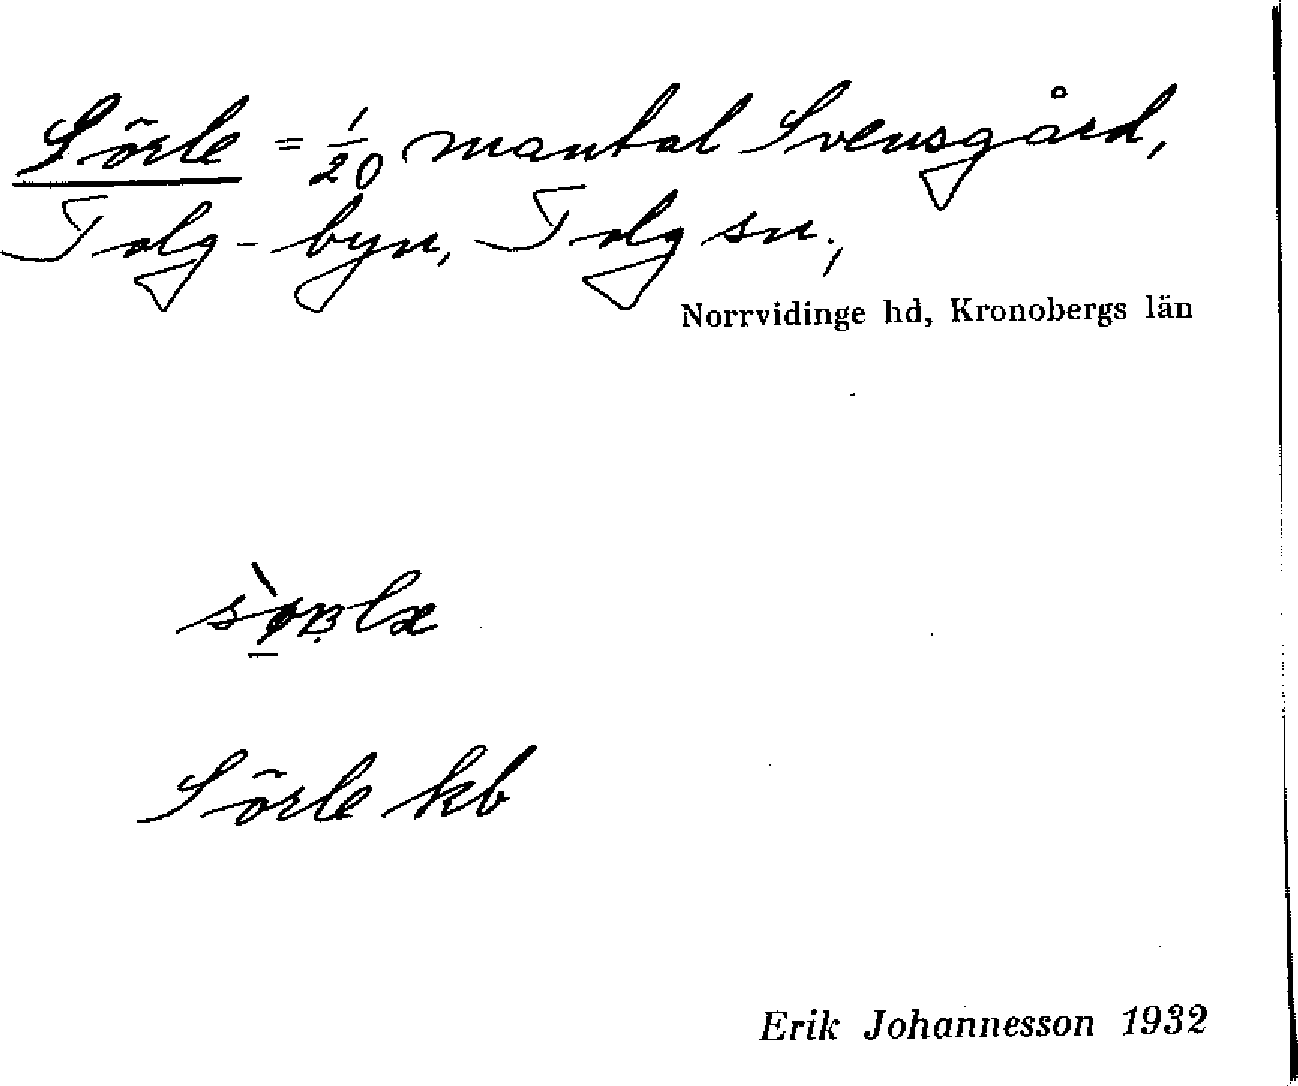 Sörle = 1/20 mantal Svensgård,
Tolg-byn, Tolg sn.,
Norrvidinge hd, Kronobergs län
Sörle kb
Erik Johannesson 1932